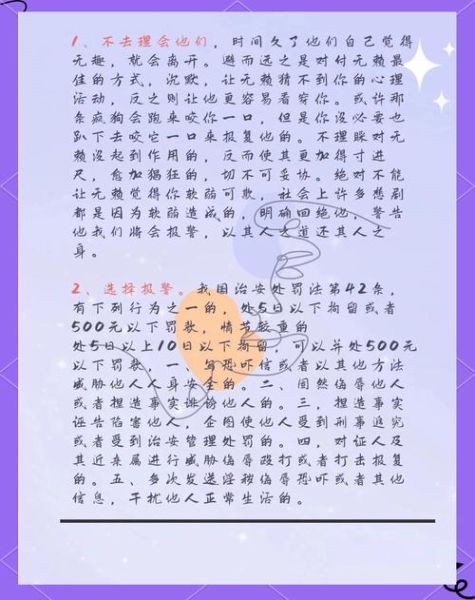 1、不去理会他们，时间久了他们自己觉得
无趣，就会离开。避而远之是对付无赖最
佳的方式，沉默，让无赖猜不到你的心理
活动，反之则让他更容易看穿你。或许那
条疯狗会跑来咬你一口，但是你没必要也
趴下去咬它一口来报复他的。不理睬对无
赖没起到作用的，反而使其更加得寸进
尺，愈加猖狂的，切不可妥协。绝对不能
让无赖觉得你软弱可欺，社会上许多悲剧
都是因为软弱造成的，明确回绝他，警告
他我们将会报警，以其人之道还其人之
身。
2、选择报警。我国治安处罚法第42条，
有下列行为之一的，处5日以下拘留或者
500元以下罚款，情节较重的
处5日以上10日以下拘留，可以并处500元
以下罚款：一、写恐吓信或者以其他方法
威胁他人人身安全的。二、闰然侮辱他人
或者捏造事实诽谤他人的。三，捏造事实
诬告陷害他人，企图使他人受到刑事追究
或者受到治安管理处罚的。四，对证人及
其近亲属进行威胁侮辱殴打或者打击报复
的。五、多次发送淫秽侮辱恐吓或者其他
信息，干扰他人正常生活的。